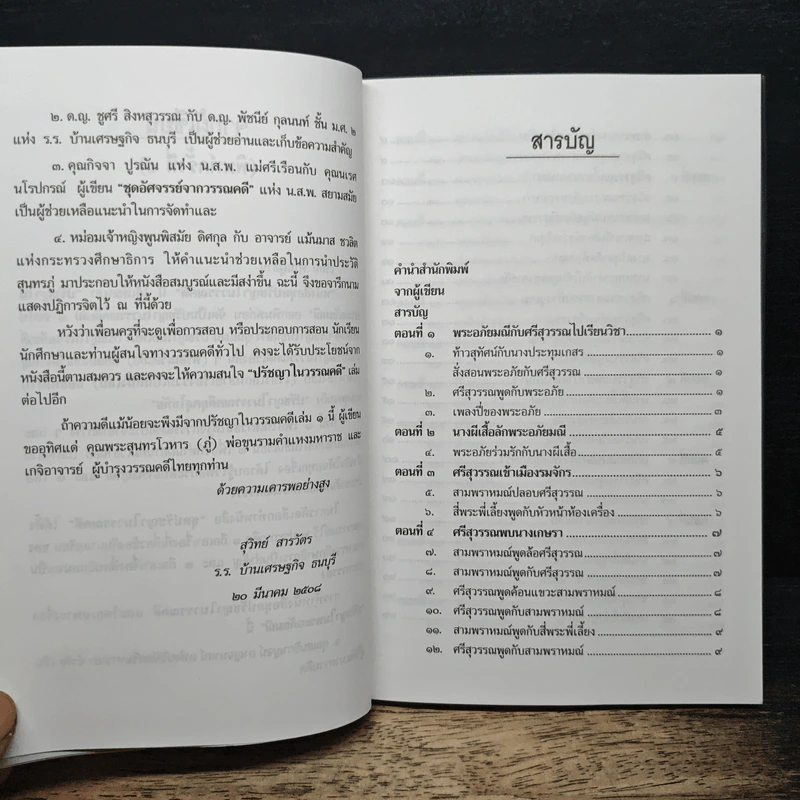 ๒. ด.ญ. ชูศรี สิงหสุวรรณ กับ ด.ญ. พัชนีย์ กุลนนท์ ชั้น ม.ศ. ๒
แห่ง ร.ร. บ้านเศรษฐกิจ ธนบุรี เป็นผู้ช่วยอ่านและเก็บข้อความสำคัญ
๓. คุณกิจจา ปูรณัน แห่ง น.ส.พ. แม่ศรีเรือนกับ คุณนเรศ
นโรปกรณ์ ผู้เขียน “ชุดอัศจรรย์จากวรรณคดี” แห่ง น.ส.พ. สยามสมัย
เป็นผู้ช่วยเหลือแนะนำในการจัดทำและ
๔. หม่อมเจ้าหญิงพูนพิสมัย ดิศกุล กับ อาจารย์ แม้นมาส ชวลิต
แห่งกระทรวงศึกษาธิการ ให้คำแนะนำช่วยเหลือในการนำประวัติ
สุนทรภู่ มาประกอบให้หนังสือสมบูรณ์และมีสง่าขึ้น ฉะนี้ จึงขอจารึกนาม
แสดงปฏิการจิตไว้ ณ ที่นี้ด้วย
หวังว่าเพื่อนครูที่จะดูเพื่อการสอบ หรือประกอบการสอน นักเรียน
นักศึกษาและท่านผู้สนใจทางวรรณคดีทั่วไป คงจะได้รับประโยชน์จาก
หนังสือนี้ตามสมควร และคงจะให้ความสนใจ “ปรัชญาในวรรณคดี” เล่ม
ต่อไปอีก
ถ้าความดีแม้น้อยจะพึงมีจากปรัชญาในวรรณคดีเล่ม ๑ นี้ ผู้เขียน
ขออุทิศแด่ คุณพระสุนทรโวหาร (ภู่) พ่อขุนรามคำแหงมหาราช และ
เกจิอาจารย์ ผู้บำรุงวรรณคดีไทยทุกท่าน
ด้วยความเคารพอย่างสูง
สุวิทย์ สารวัตร
ร.ร. บ้านเศรษฐกิจ ธนบุรี
๒๐ มีนาคม ๒๕๐๘
สารบัญ
คำนำสำนักพิมพ์
จากผู้เขียน
สารบัญ
ตอนที่ ๑ พระอภัยมณีกับศรีสุวรรณไปเรียนวิชา ๑
๑. ท้าวสุทัศน์กับนางประทุมเกสร
สั่งสอนพระอภัยกับศรีสุวรรณ ๑
๒. ศรีสุวรรณพูดกับพระอภัย ๑
๓. เพลงปี่ของพระอภัย ๓
ตอนที่ ๒ นางผีเสื้อลักพระอภัยมณี ๕
๔. พระอภัยร่วมรักกับนางผีเสื้อ ๕
ตอนที่ ๓ ศรีสุวรรณเข้าเมืองรมจักร ๖
๕. สามพราหมณ์ปลอบศรีสุวรรณ ๖
๖. สี่พระพี่เลี้ยงพูดกับหัวหน้าท้องเครื่อง ๖
ตอนที่ ๔ ศรีสุวรรณพบนางเกษรา ๗
๗. สามพราหมณ์พูดล้อศรีสุวรรณ ๗
๘. สามพราหมณ์พูดกับศรีสุวรรณ ๗
๙. ศรีสุวรรณพูดค้อนแขวะสามพราหมณ์ ๘
๑๐. ศรีสุวรรณพูดกับสามพราหมณ์ ๘
๑๑. สามพราหมณ์พูดกับสี่พระพี่เลี้ยง ๙
๑๒. ศรีสุวรรณพูดกับสามพราหมณ์ ๙